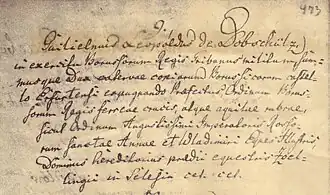 9.
493
Guilielmus Leopoldus de Dobschütz,
in exercitu Borussorum Regis tribunus militum sum-
musque Dux catervae copiarum Borussicarum castel-
lo Erfurtensi expugnando Praefectus Ordinum Borus-
sorum Regis ferreae crucis, atque aquilae rubrae,
sicut Ordinum Augustissimi Imperatoris
sanctae Annae et Wladimiri Eques Illustris
Dominus hereditarius praedii equestris
in Silesia cet. cet.